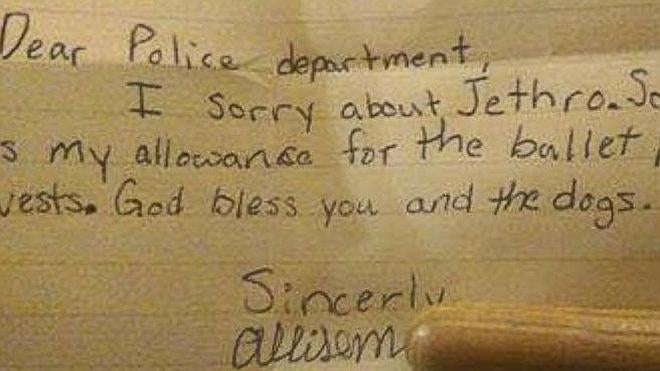 Dear Police department,
I sorry about Jethro. So
s my allowance for the ballet
vests. God bless you and the dogs.
Sincerly
Allisom